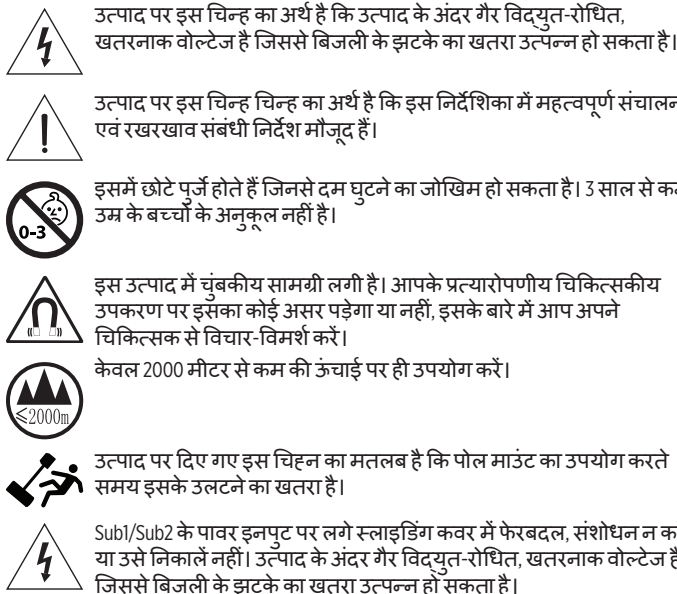 उत्पाद पर इस चिन्ह का अर्थ है कि उत्पाद के अंदर गैर विद्युत-रोधित,
खतरनाक वोल्टेज है जिससे बिजली के झटके का खतरा उत्पन्न हो सकता है।
उत्पाद पर इस चिन्ह चिन्ह का अर्थ है कि इस निर्देशिका में महत्वपूर्ण संचालन
एवं रखरखाव संबंधी निर्देश मौजूद हैं।
इसमें छोटे पुर्जे होते हैं जिनसे दम घुटने का जोखिम हो सकता है। 3 साल से
0-3
उम्र के बच्चों के अनुकूल नहीं है।
इस उत्पाद में चुंबकीय सामग्री लगी है। आपके प्रत्यारोपणीय चिकित्सकीय
उपकरण पर इसका कोई असर पड़ेगा या नहीं, इसके बारे में आप अपने
चिकित्सक से विचार-विमर्श करें।
केवल 2000 मीटर से कम की ऊंचाई पर ही उपयोग करें।
≤2000m
उत्पाद पर दिए गए इस चिह्न का मतलब है कि पोल माउंट का उपयोग करते
समय इसके उलटने का खतरा है।
Sub1/Sub2 के पावर इनपुट पर लगे स्लाइडिंग कवर में फेरबदल, संशोधन न
या उसे निकालें नहीं। उत्पाद के अंदर गैर विद्युत-रोधित, खतरनाक वोल्टेज है
जिससे बिजली के झटके का खतरा उत्पन्न हो सकता है।